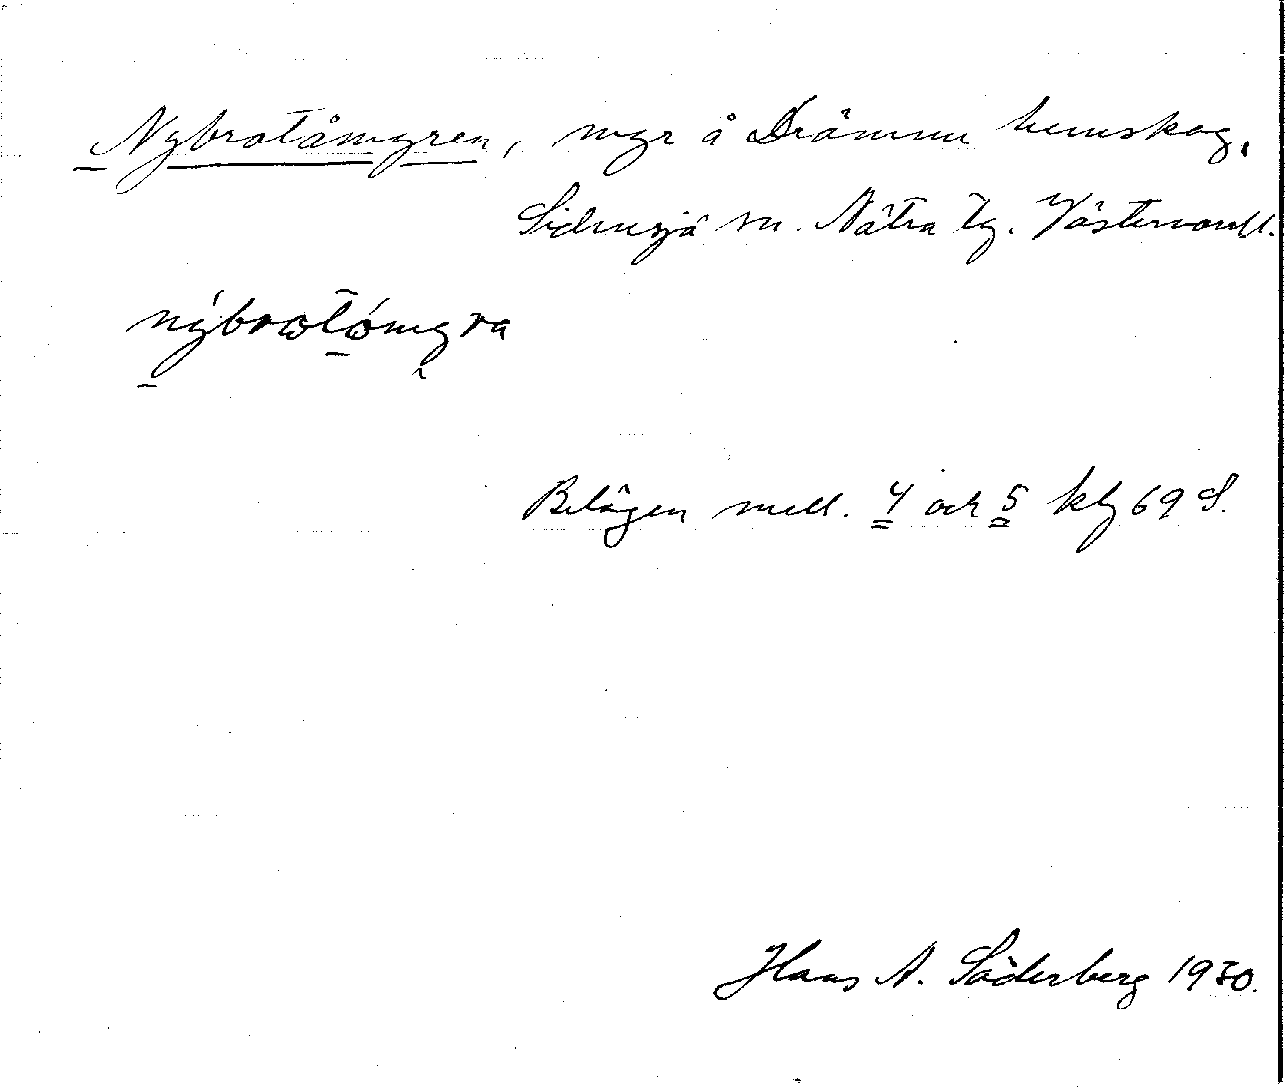 Nybrotåmyren, myr å Drömme hemskog,
Sidensjö sn. Nätra tg. Västernorrl.
nýbrotómyra
Belägen mell. 4 och 5 klj 69 S.
Hans A. Söderberg 1930.